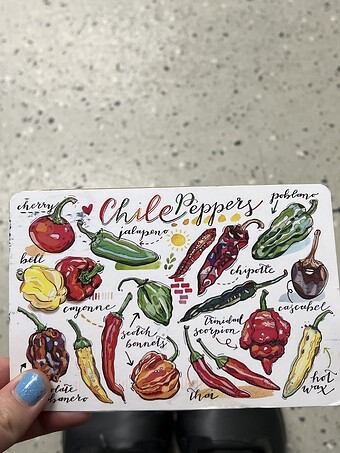 cherry
Chile Peppers
poblano
jalapeno
bell
chipotle
cayenne
cascabel
scotch
bonnets
trinidad
scorpion
thai
hot
wax